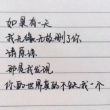 如果有一天
我无缘无故删了你
请原谅
那是我发现
你的世界真的不缺我一个